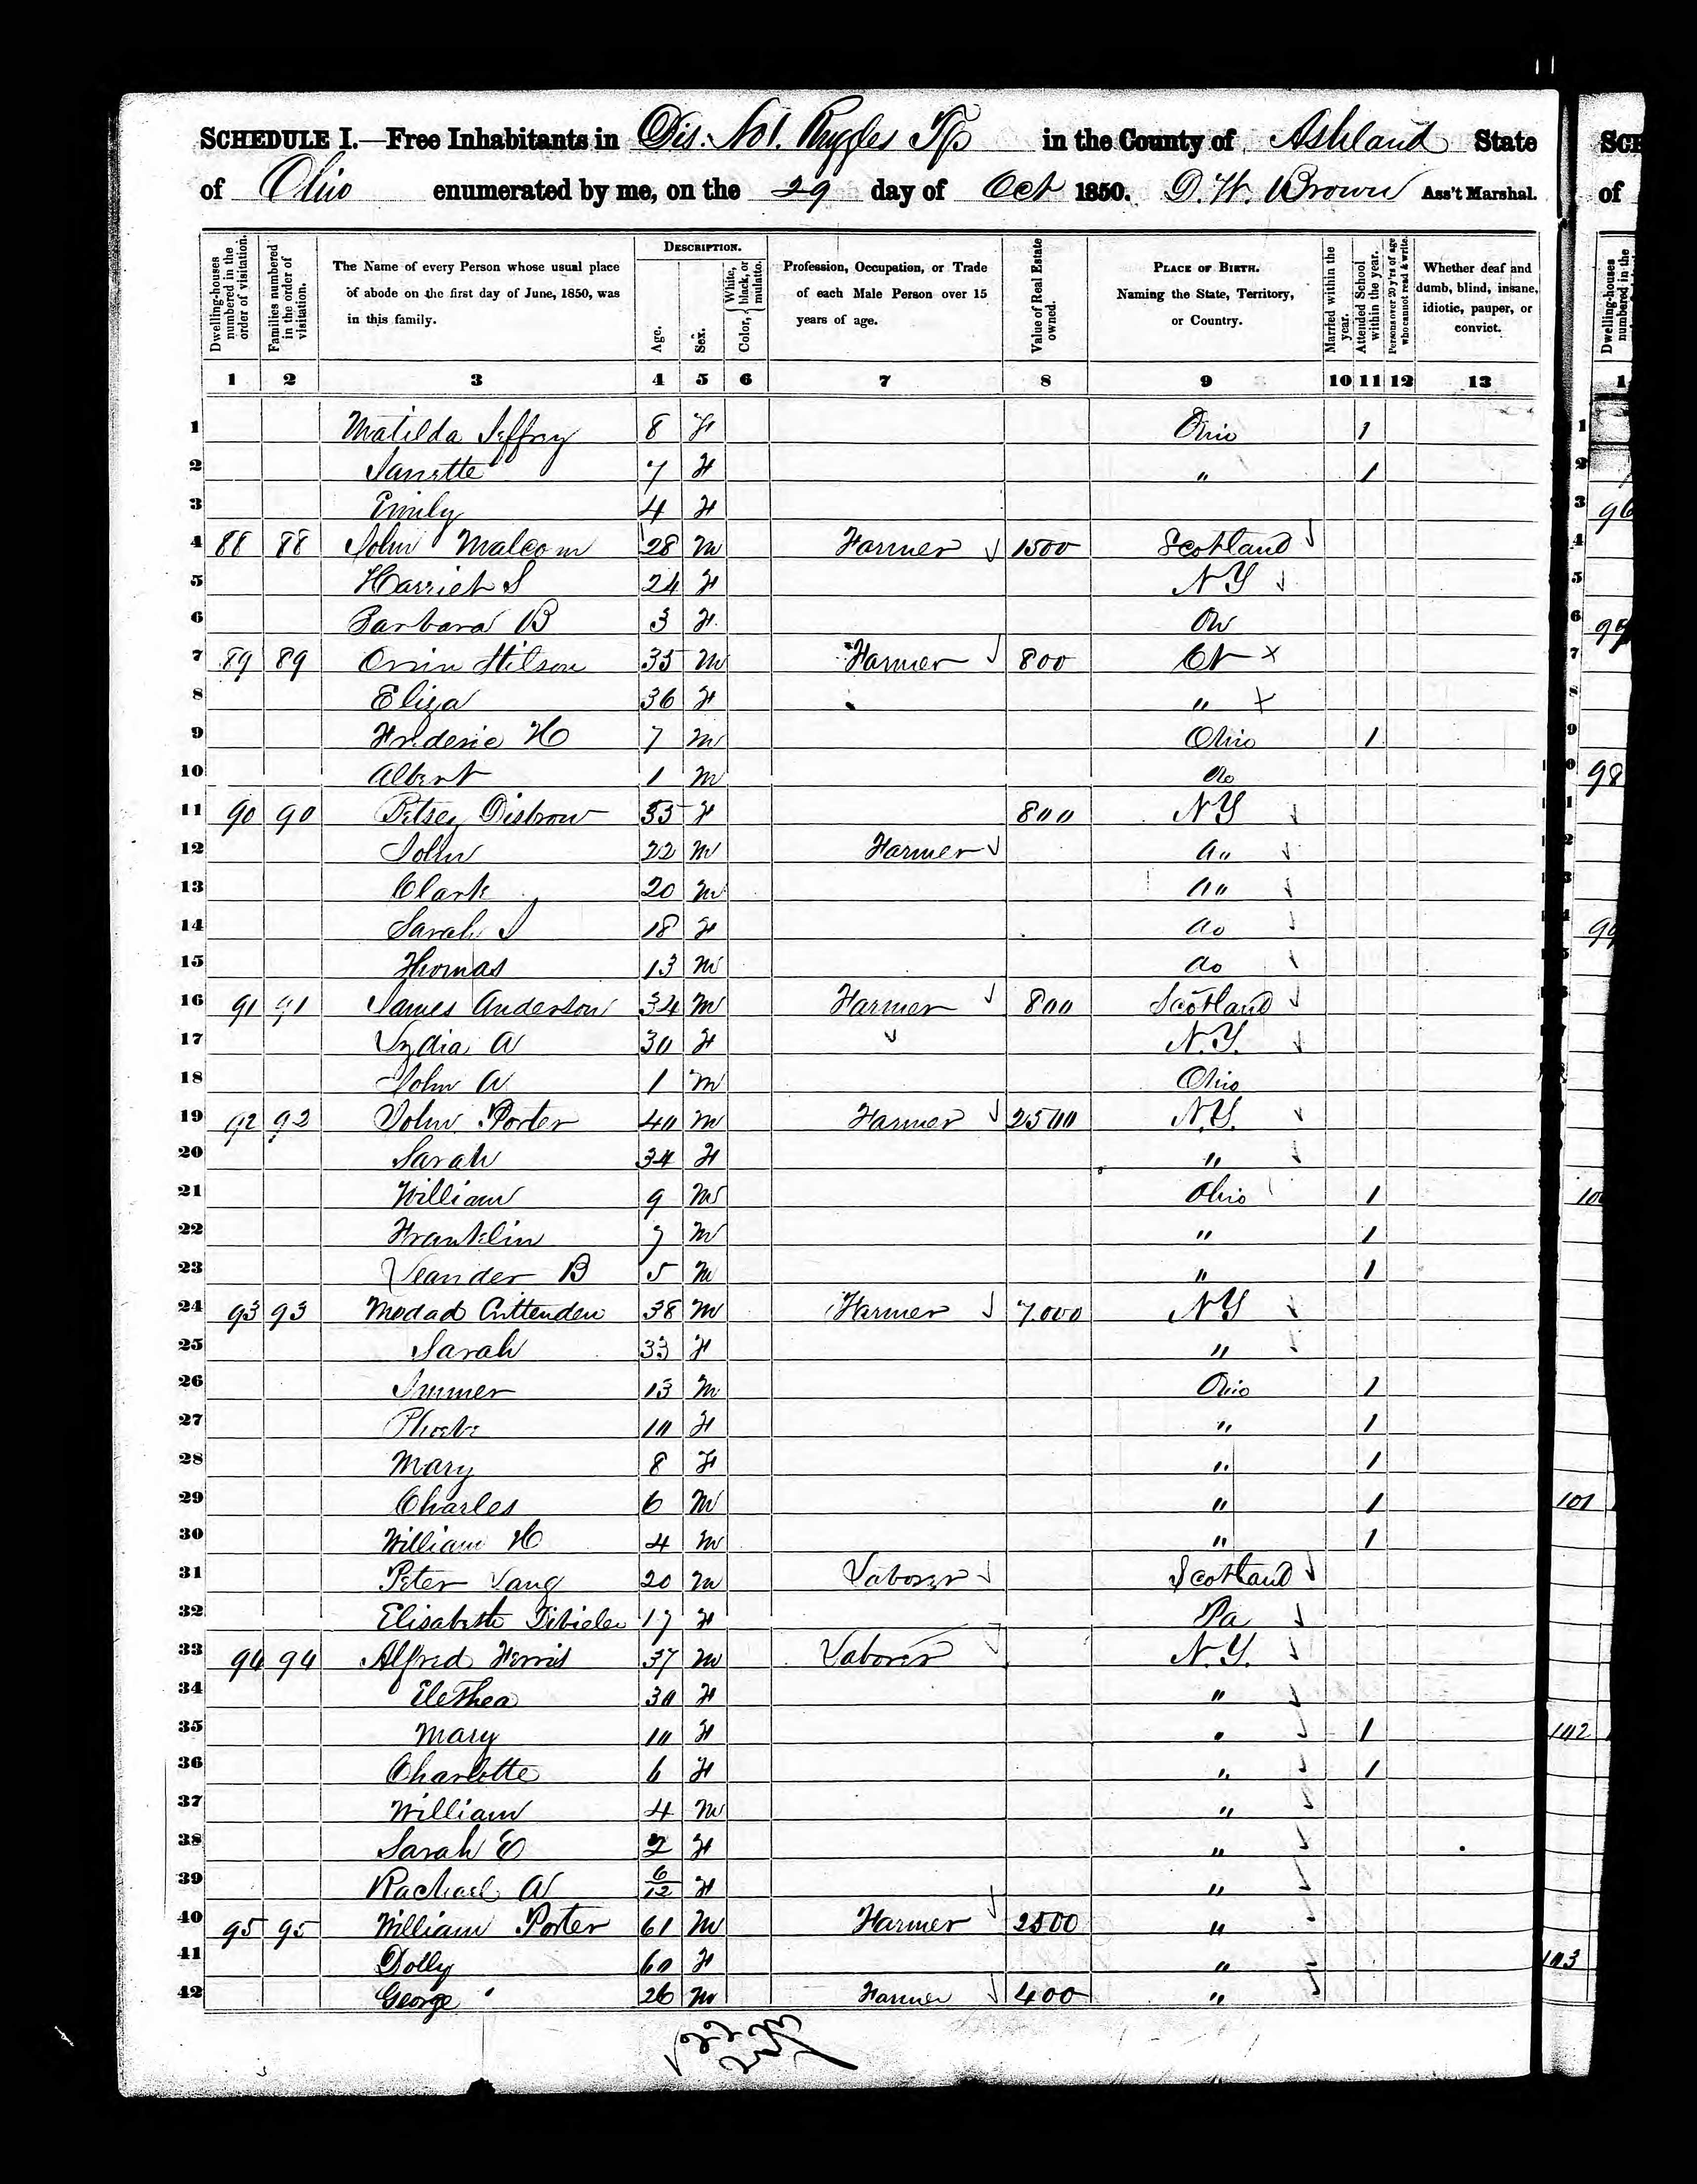 SCHEDULE I.—Free Inhabitants in Dis. No 1. Ruggles Tp in the County of Ashland State
of Ohio enumerated by me, on the 29 day of Oct 1850. D. W. Brown Ass't Marshal.
Dwelling-houses numbered in the order of visitation.
Families numbered in the order of visitation.
The Name of every Person whose usual place of abode on the first day of June, 1850, was in this family.
DESCRIPTION.
Age.
Sex.
Color, { White, black, or mulatto.
Profession, Occupation, or Trade of each Male Person over 15 years of age.
Value of Real Estate owned.
PLACE OF BIRTH. Naming the State, Territory, or Country.
Married within the year.
Attended School within the year.
Persons over 20 y'rs of age who cannot read & write.
Whether deaf and dumb, blind, insane, idiotic, pauper, or convict.
1 2 3 4 5 6 7 8 9 10 11 12 13
1 Matilda Jeffrey 8 F Ohio 1
2 Janette 7 F " 1
3 Emily 4 F
4 88 88 John Malcom 28 M Farmer 1500 Scotland
5 Harriet S 24 F NY
6 Barbara B 3 F Oh
7 89 89 Orrin Stilson 35 M Farmer 800 Ct x
8 Eliza 36 F " x
9 Frederic H 7 M Ohio 1
10 Albert 1 M do
11 90 90 Betsey Disbrow 55 F 800 NY
12 John 22 M Farmer do
13 Clark 20 M do
14 Sarah J 18 F do
15 Thomas 13 M do
16 91 91 James Anderson 34 M Farmer 800 Scotland
17 Lydia A 30 F N.Y.
18 John A 1 M Ohio
19 92 92 John Porter 40 M Farmer 2500 N.Y.
20 Sarah 34 F "
21 William 9 M Ohio 1
22 Franklin 7 M " 1
23 Leander B 5 M " 1
24 93 93 Medad Crittenden 38 M Farmer 7.000 NY
25 Sarah 33 F "
26 13 M Ohio 1
27 Phoebe 10 F " 1
28 Mary 8 F " 1
29 Charles 6 M " 1
30 William H 4 M " 1
31 Peter Lang 20 M Laborer Scotland
32 Elisabeth 17 F Pa
33 94 94 Alfred Ferris 37 M Laborer N.Y.
34 Elethea 30 F "
35 Mary 10 F " 1
36 Charlotte 6 F " 1
37 William 4 M "
38 Sarah E 2 F "
39 Rachael A 6/12 F "
40 95 95 William Porter 61 M Farmer 2500 "
41 Dolly 60 F "
42 George " 26 M Farmer 400 "